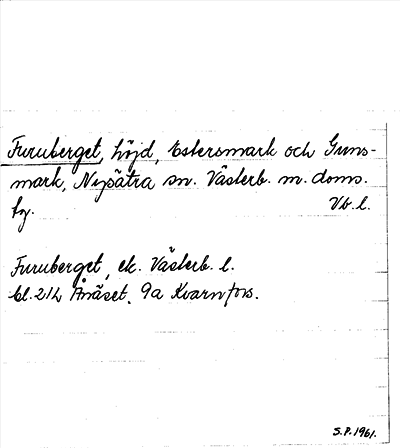 Furuberget, höjd, Estersmark och Guns-
mark, Nysätra sn. Västerb. m. doms.
fg. Vb. l.
Furuberget, ek. Västerb. l.
bl. 21L Ånäset, 9a Kvarnfors.
S.P. 1961.